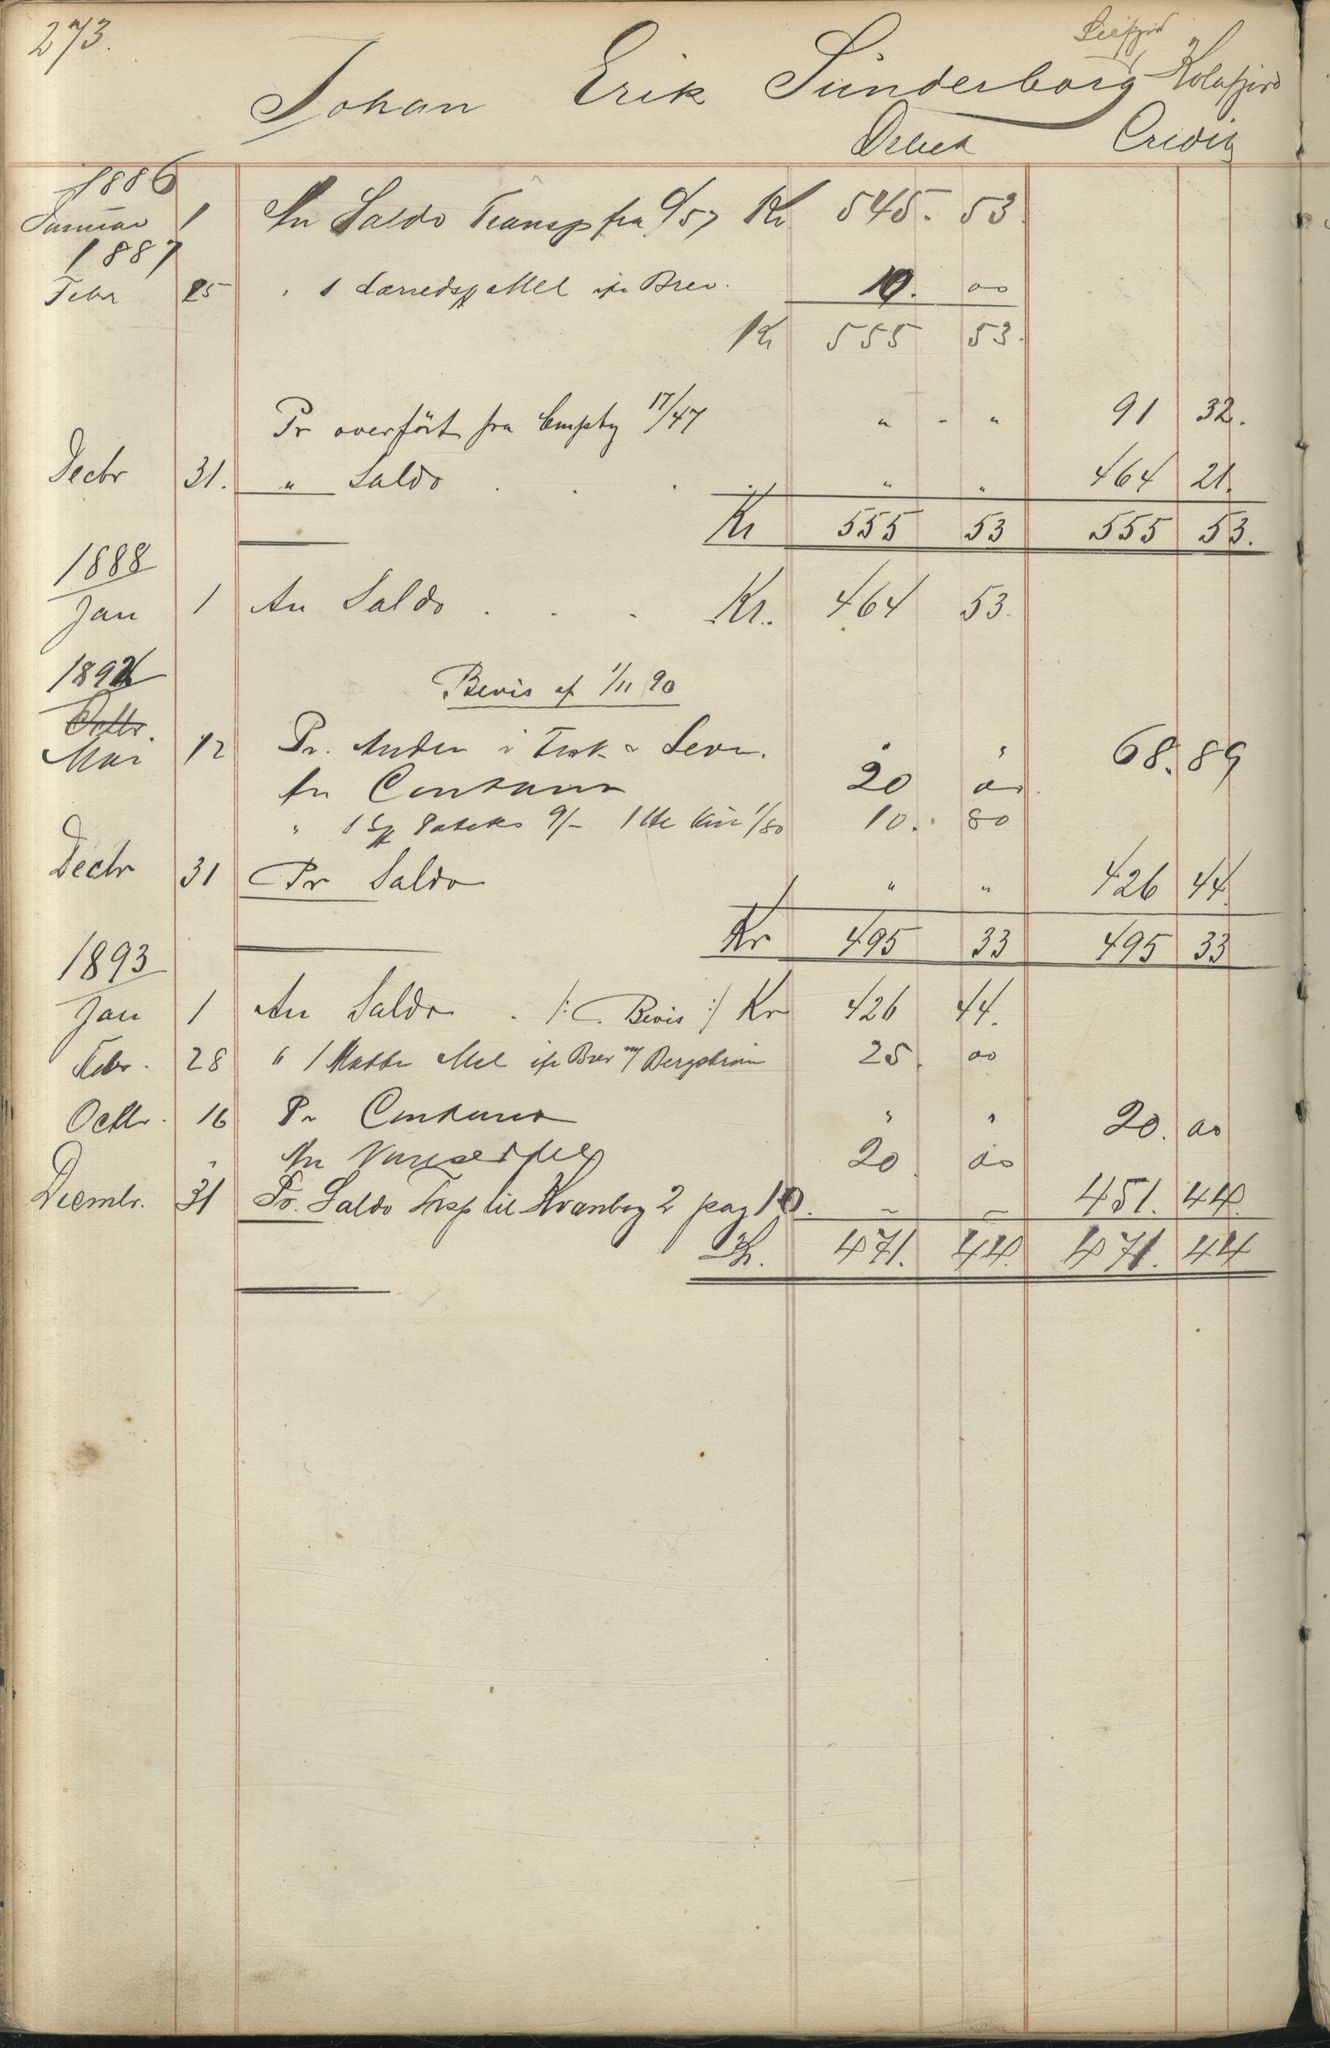 273.
Johan Erik Sünderborg Kolafjord
Debet Credit
1886
Januar 1 An Saldo Transp fra 9/57 Kr 545. 53.
1887
Febr 25 " 1 Mel Brev. 10. 00
Kr 555 53.
Pr overfört fra Empty 17/47 " - " 91 32.
Decbr 31. " Saldo . . . " " 464 21.
Kr 555 53 555 53.
1888
Jan 1 An Saldo . . . Kr. 464 53.
1892
Bevis af 1/11 90
Octbr.
Mai 12 Pr. Anden i Tisk & Lever. " " 68. 89
An Contant 20 00.
" 1 9/- 1 1/80 10. 80
Decbr 31 Pr Saldo " " 426 44.
Kr 495 33 495 33
1893
Jan 1 An Saldo . /: Bevis :/ Kr 426 44.
Febr. 28 " 1 Matte Mel Brev m/ Bergström 25. 00
Octbr. 16 Pr Contant " " 20. 00
An 20 00
Decmbr. 31 Pr. Saldo Trsp til Kvænbog 2 pag 10. – – 451. 44.
Kr. 471. 44. 471. 44